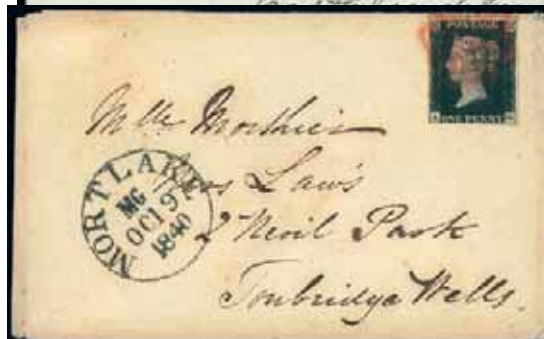 POSTAGE
ONE PENNY
Mlle Morthier
Laws
2 Nevil Park
Tonbridge Wells.
MORTLAKE
MG
OCT 9
1840